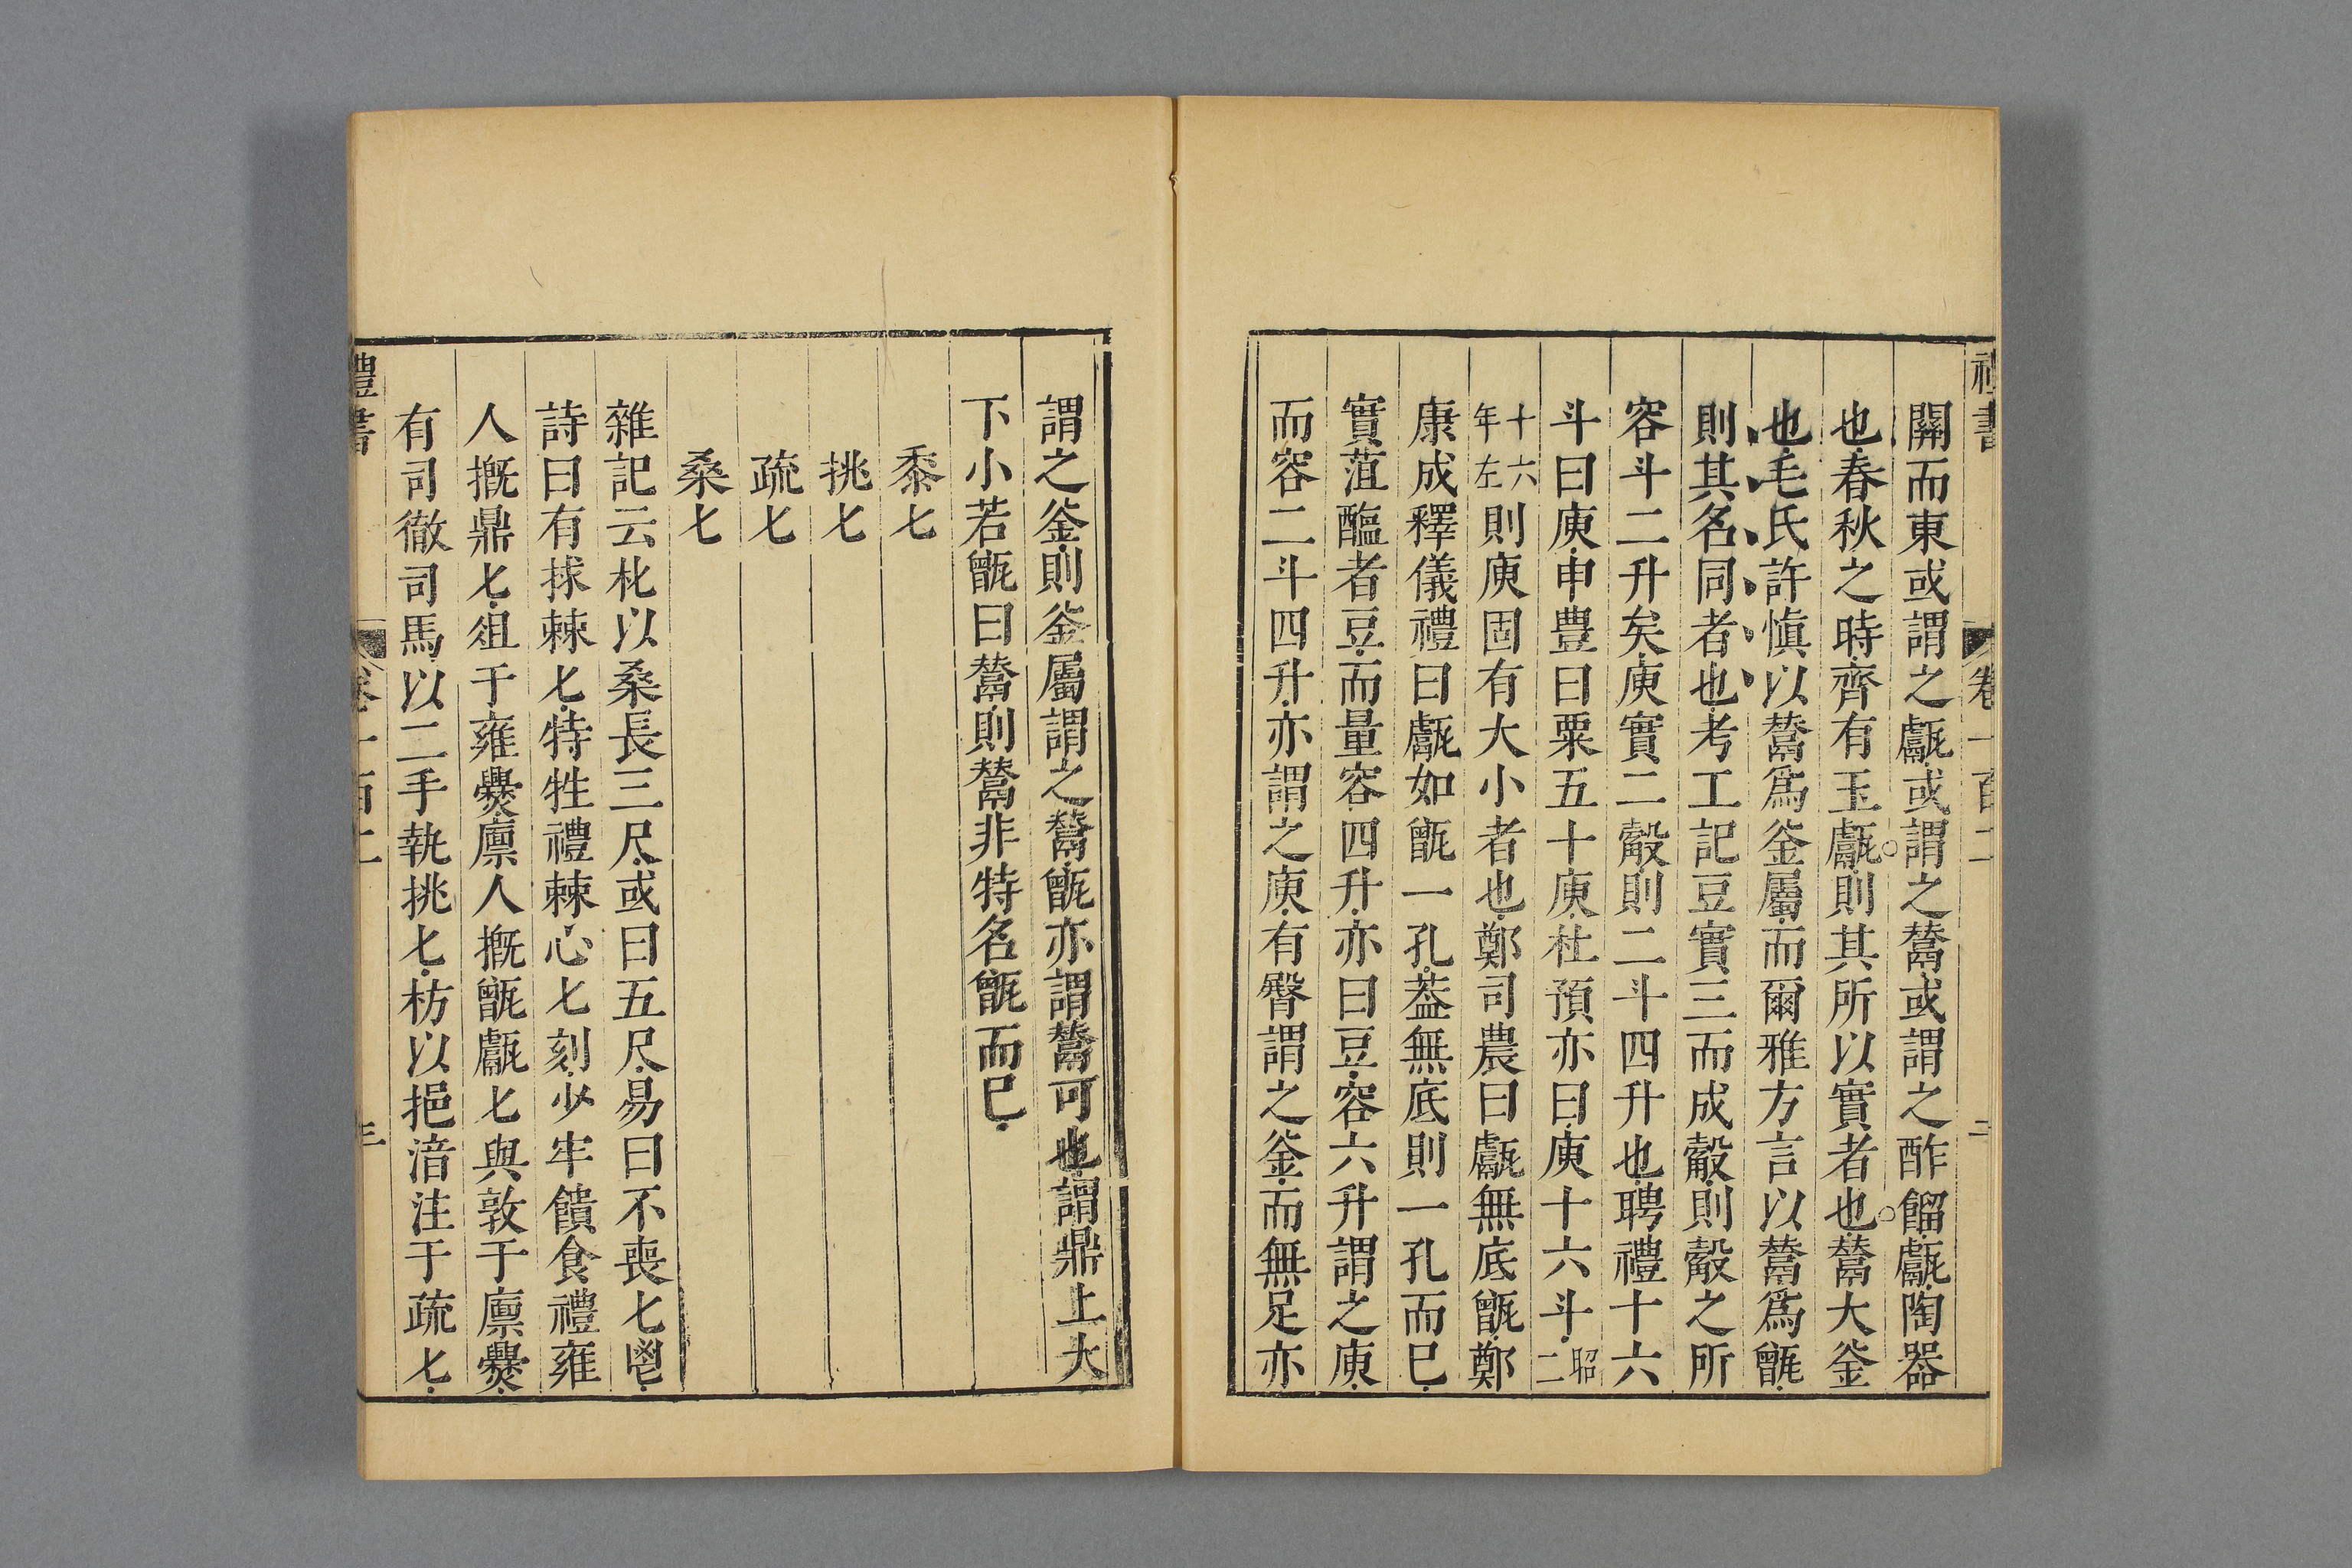 關而東或謂之甗或謂之鬵或謂之酢餾甗陶器
也春秋之時齊有玉甗則其所以實者也鬵大釜
也毛氏許愼以鬵爲釜屬而爾雅方言以鬵爲甑
則其名同者也考工記豆實三而成觳則觳之所
容斗二升矣庾實二觳則二斗四升也聘禮十六
斗曰庾申豊曰粟五十庾杜預亦曰庾十六斗昭二
十六年左則庾固有大小者也鄭司農曰甗無底甑鄭
康成釋儀禮曰甗如甑一孔葢無底則一孔而已
實菹醢者豆而量容四升亦曰豆容六升謂之庾
而容二斗四升亦謂之庾有臀謂之釜而無足亦
謂之釜則釜屬謂之鬵甑亦謂鬵可也謂鼎上大
下小若甑曰鬵則鬵非特名甑而已
黍七
挑七
疏七
桑七
雜記云朼以桑長三尺或曰五尺易曰不喪七鬯
詩曰有捄棘七特牲禮棘心七刻少牢饋食禮雍
人摡鼎七俎于雍爨廩人摡甑甗七與敦于廩爨
有司徹司馬以二手執挑七枋以挹湆注于疏七
禮書
卷一百二
三